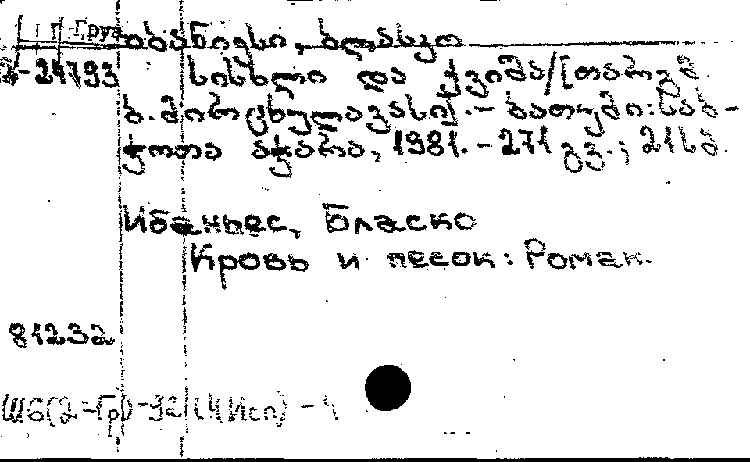 Груз
იბანიესი, ბლასკო
2-24793 სისხლი და ქვიშა/[თარგმ.
ბ. მირცხულავასი].- ბათუმი: საბ-
ჭოთა აჭარა, 1981. - 271 გვ.; 21სმ.
Ибаньес, Бласко
Кровь и песок: Роман.
81232
Ш6(2=Гр)-92 (4Исп) - 4